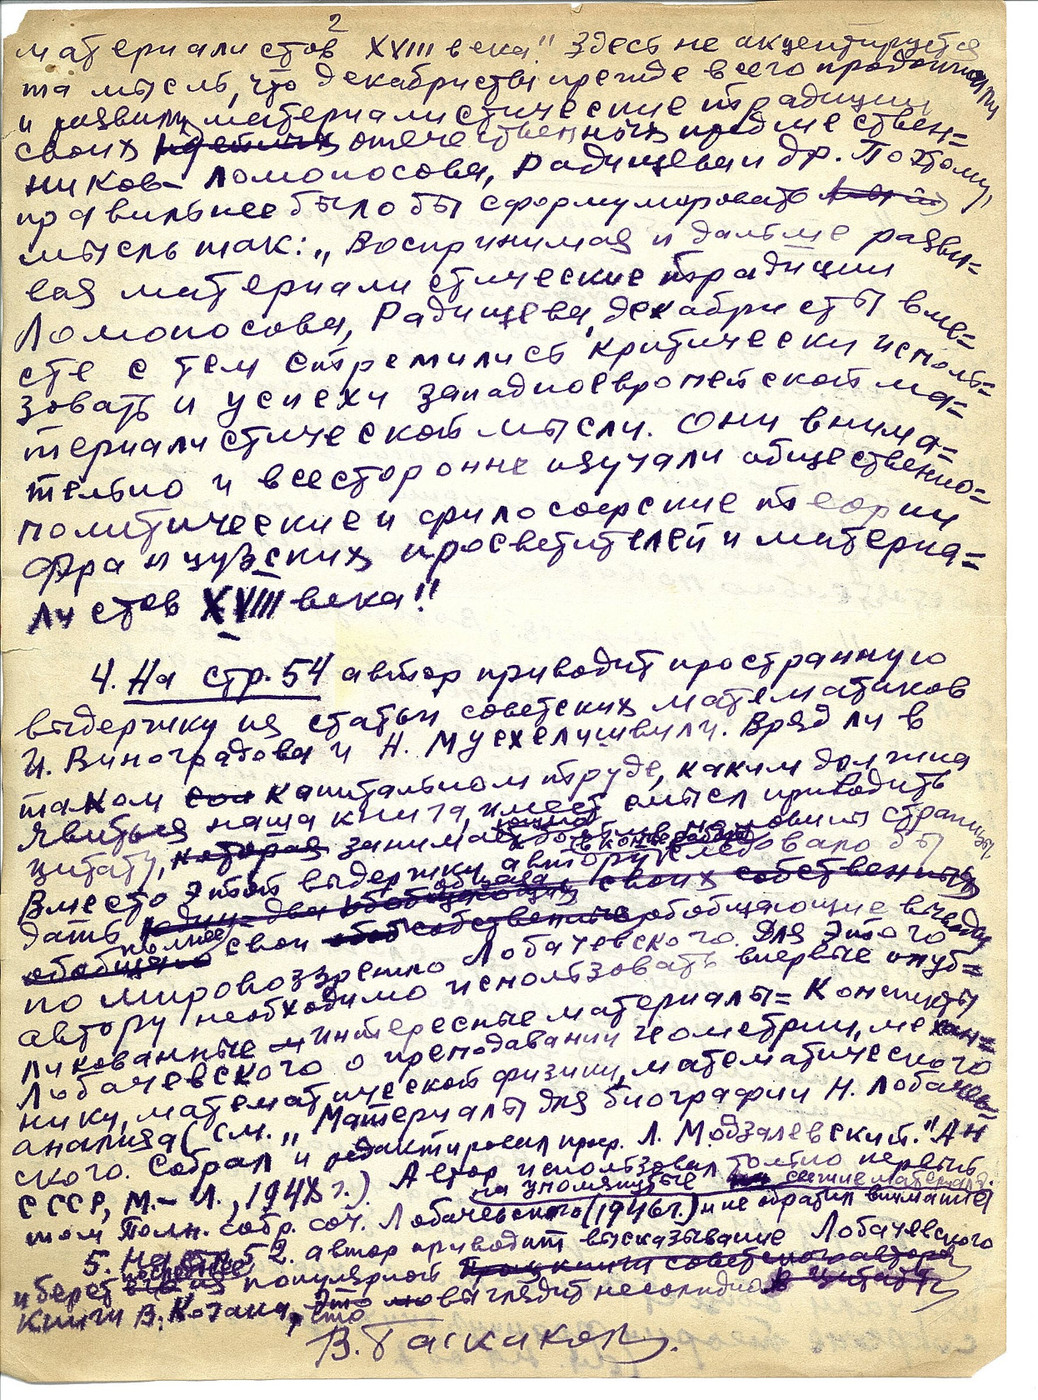 2
материалистов XVIII века". Здесь не акцентируется
та мысль, что декабристы прежде всего продолжали
и развили материалистические традиции
своих идейных отечественных предшествен=
ников – Ломоносова, Радищева и др. Поэтому,
правильнее было бы сформулировать
мысль так: „Воспринимая и дальше разви=
вая материалистические традиции
Ломоносова, Радищева, декабристы вме=
сте с тем стремились критически исполь=
зовать и успехи западноевропейской ма=
териалистической мысли. Они внима=
тельно и всесторонне изучали общественно=
политические и философские теории
французских просветителей и материа=
листов XVIII века".
4. На стр. 54 автор приводит пространную
выдержку из статьи советских математиков
И. Виноградова и Н. Мусхелишвили. Вряд ли в
таком капитальном труде, каким должна
явиться наша книга, имеет смысл приводить
цитату, которая занимает половину страницы.
Вместо этой выдержки автору следовало бы
дать своих собственных
обобщенно свои собственные обобщающие взгляды
по мировоззрению Лобачевского. Для этого
автору необходимо использовать впервые опуб=
ликованные интересные материалы= Конспекты
Лобачевского о преподавании геометрии, механ=
ики, математической физики, математического
анализа (см. „Материалы для биографии Н. Лобачев=
ского. Собрал и редактировал проф. Л. Модзалевский." АН
СССР, М.–Л., 1948 г.) Автор использовал только первый
на упомянутые свежие материалы.
том Полн. собр. соч. Лобачевского (1946 г.) и не обратил внимание
5. На стр. 52. автор приводит высказывание Лобачевского
и берет последнее из популярной
книги В. Кагана, что выглядит несолидно